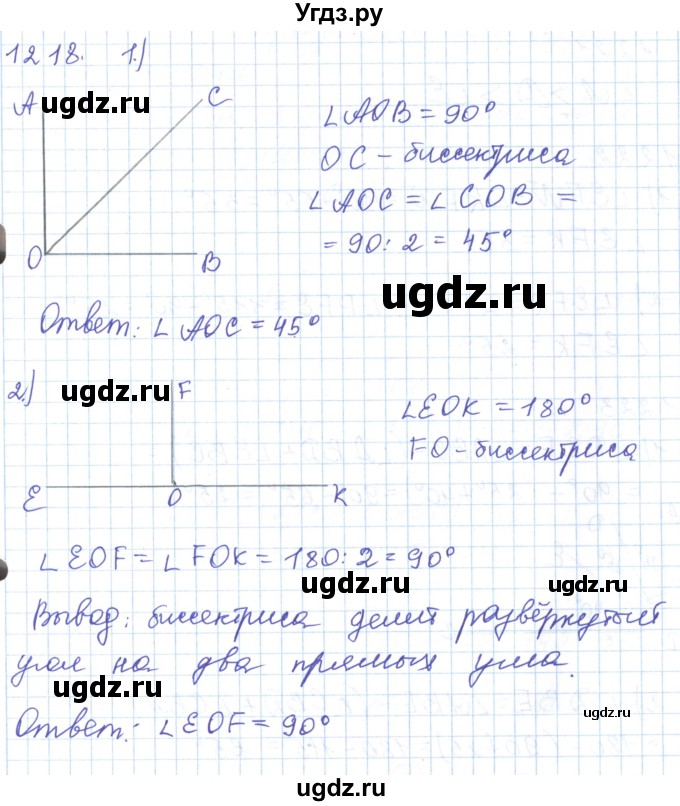 Угдз.ру
12.18. 1.)
A
ugdz.ru
C
∠AOB = 90°
OC - биссектриса
∠AOC = ∠COB =
= 90 : 2 = 45°
O
B
ugdz.ru
Ответ: ∠AOC = 45°
2.)
ugdz.ru
F
∠EOK = 180°
FO - биссектриса
E
O
K
∠EOF = ∠FOK = 180 : 2 = 90°
ugdz.ru
Вывод: биссектриса делит развёрнутый
угол на два прямых угла.
ugdz.ru
ugdz.ru
Ответ: ∠EOF = 90°
ugdz.ru